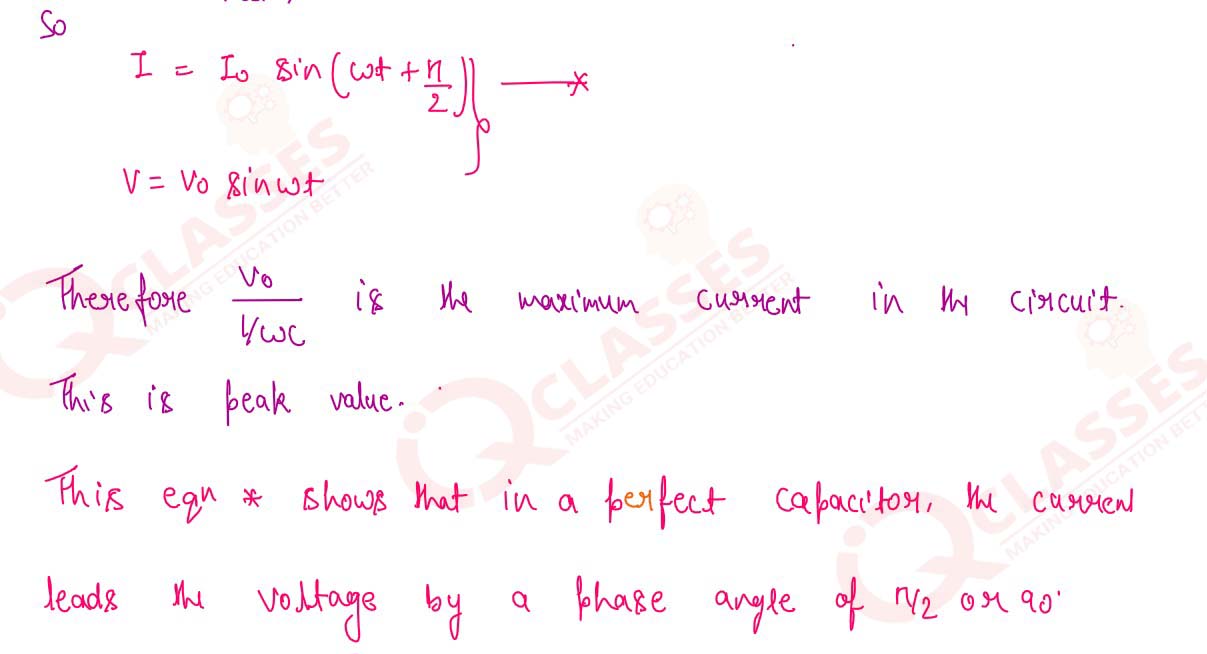 So
I = I₀ sin(ωt + π/2) ⟶ *
V = V₀ sinωt
Therefore V₀ / 1/ωC is the maximum current in the circuit.
This is peak value.
This eqn * shows that in a perfect capacitor, the current
leads the voltage by a phase angle of π/2 or 90°
iQ CLASSES
MAKING EDUCATION BETTER
iQ CLASSES
MAKING EDUCATION BETTER
iQ CLASSES
MAKING EDUCATION BETT